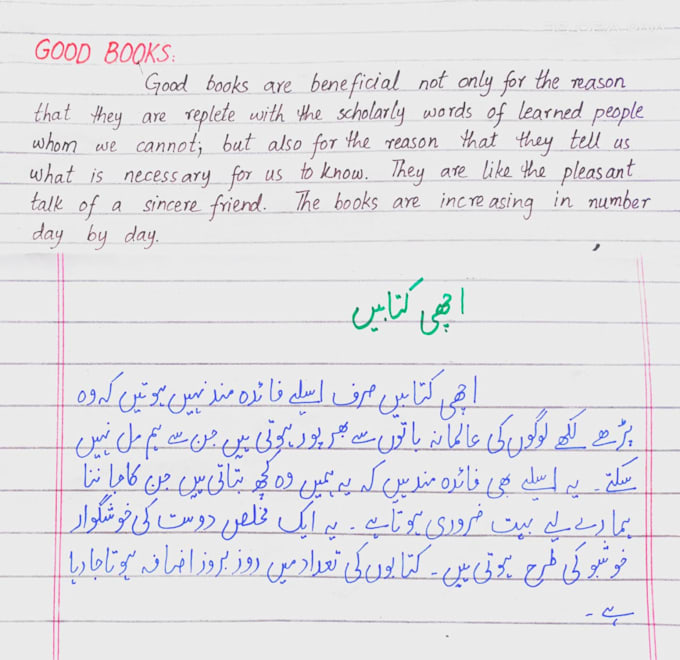 GOOD BOOKS:
Good books are beneficial not only for the reason
that they are replete with the scholarly words of learned people
whom we cannot; but also for the reason that they tell us
what is necessary for us to know. They are like the pleasant
talk of a sincere friend. The books are increasing in number
day by day.
اچھی کتابیں
اچھی کتابیں صرف اسلیے فائدہ مند نہیں ہوتیں کہ وہ
پڑھے لکھے لوگوں کی عالمانہ باتوں سے بھرپور ہوتی ہیں جن سے ہم مل نہیں
سکتے۔ یہ اسلیے بھی فائدہ مند ہیں کہ یہ ہمیں وہ کچھ بتاتی ہیں جن کا جاننا
ہمارے لیے بہت ضروری ہوتا ہے۔ یہ ایک مخلص دوست کی خوشگوار
خوشبو کی طرح ہوتی ہیں۔ کتابوں کی تعداد میں روز بروز اضافہ ہوتا جا رہا
ہے۔